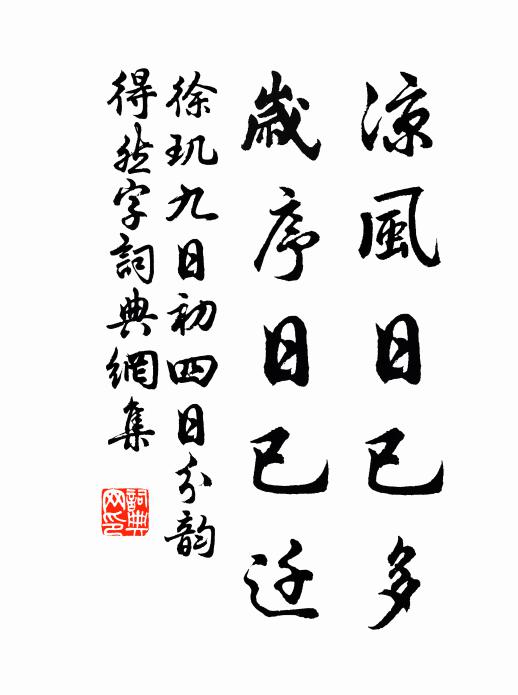 凉風日已多
歲序日已迁
徐玑九日初四日分韵
得然字詞典網集
詞典网印